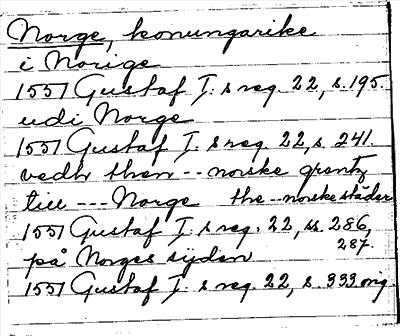 Norge, konungarike
i Norige
1551 Gustaf I:s reg. 22, s. 195.
udi Norge
1551 Gustaf I:s reg. 22, s. 241.
vedh then -- norske grentz
till --- Norge the -- norske städer
1551 Gustaf I:s reg. 22, ss. 286,
287.
på Norges sijden
1551 Gustaf I:s reg. 22, s. 333 orig.